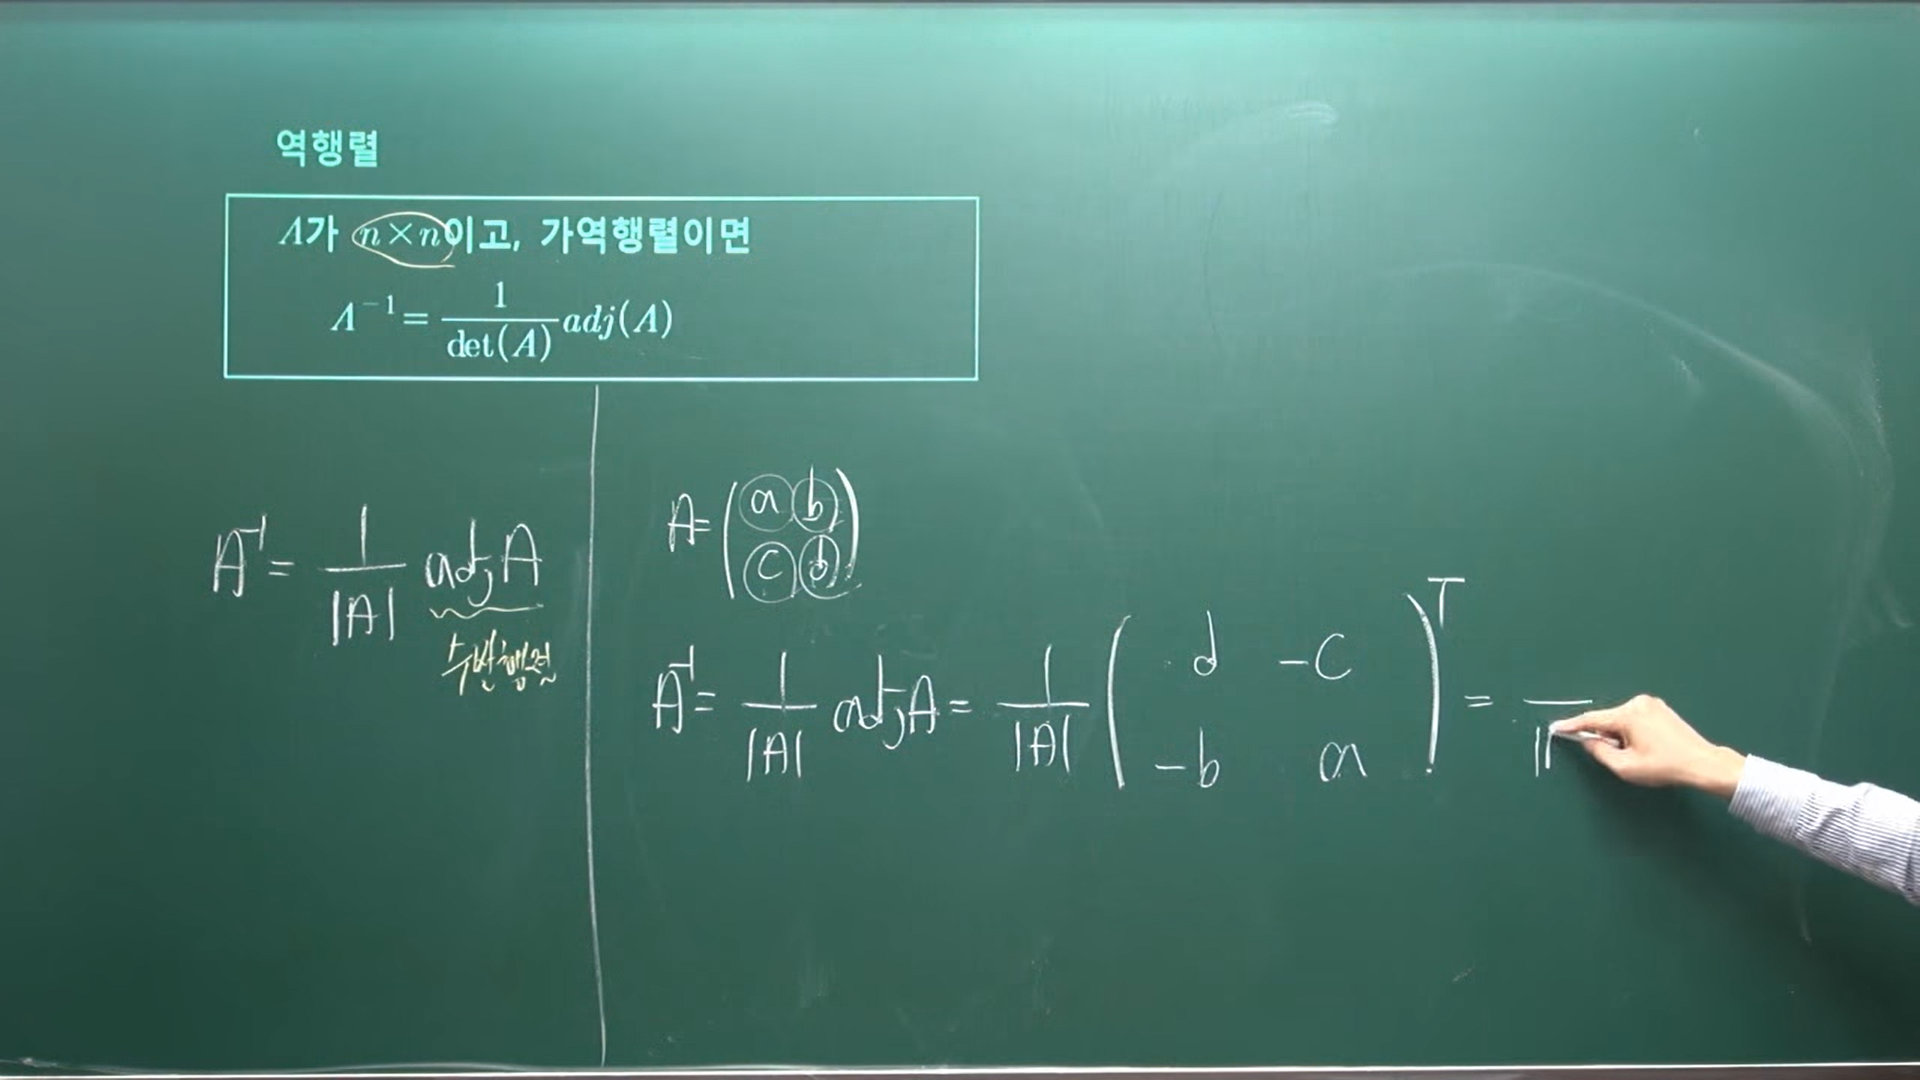 역행렬
A가 n×n이고, 가역행렬이면
A⁻¹ = 1/det(A) adj(A)
A⁻¹ = 1/|A| adj A
수반행렬
A = (a b
c d)
A⁻¹ = 1/|A| adj A = 1/|A| (d -c
-b a)ᵀ =